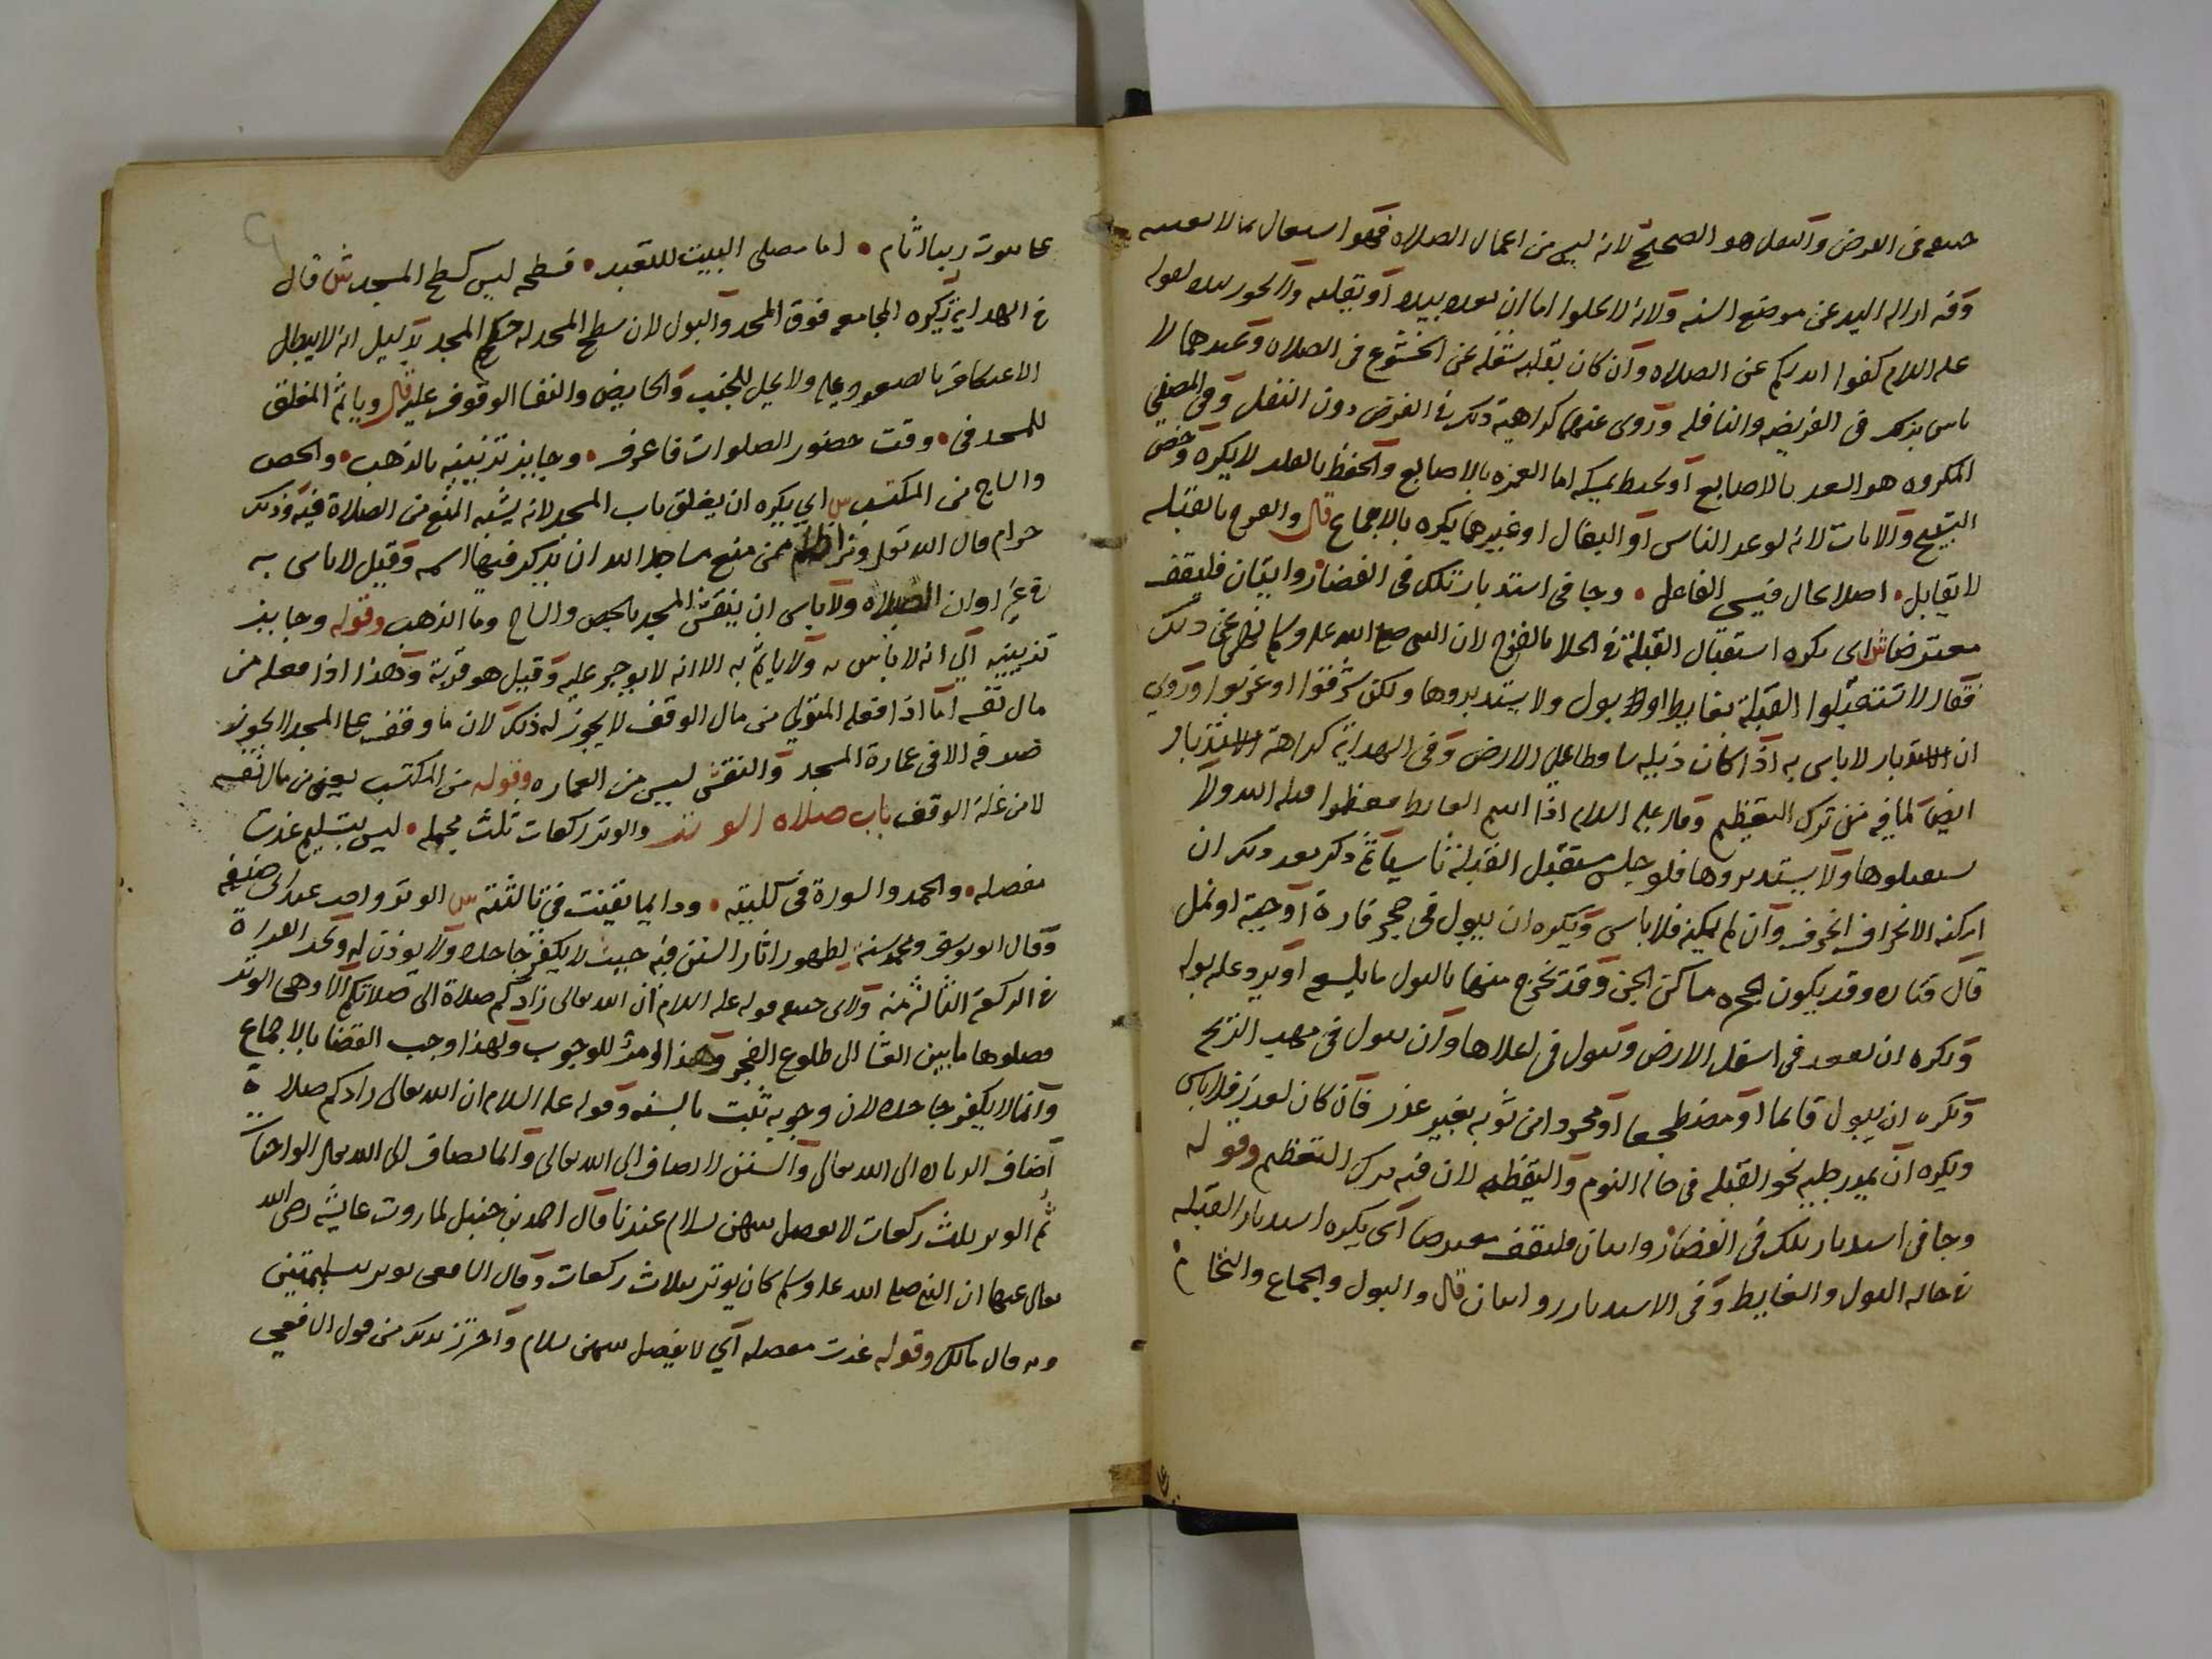 حنيفه في الفرض والنفل هو الصحيح لانه ليس من اعمال الصلاه فهو اشتغال بما لا يعنيه
وفيه ازاله اليد عن موضع السنه ولانه لا يخلوا اما ان يعده بيده او بقلبه ولا يجوز بيده لقوله
عليه السلام كفوا ايديكم عن الصلاه وان كان بقلبه شغله عن الخشوع في الصلاه وعندهما لا
باس بذلك في الفريضه والنافله وروى عنهما كراهية ذلك في الفرض دون النفل وفي المصفى
المكروه هو العد بالاصابع او بخيط يمسكه اما الغمزه بالاصابع والحفظ بالقلب لا يكره وخص
التسبيح والايات لانه لو عد الناس او البغال او غيرهما يكره بالاجماع قال والفرج بالقبله
لا يقابل • اصلا بحال فيسي الفاعل • وجا في استدبار تلك في الفضا روايتان فليقف
معترضا ش اى يكره استقبال القبلة في الخلا بالفرج لان النبي صلى الله عليه وسلم نهى عن ذلك
فقال لا تستقبلوا القبلة بغايط او لا بول ولا يستدبروها ولكن شرقوا او غربوا وروي
ان الاستدبار لا باس به اذا كان ذيله ساقطا على الارض وفي الهداية كراهة الاستدبار
ايضا لما فيه من ترك التعظيم وقال عليه السلام اذا اتيتم الغايط فعظموا قبلة الله ولا
تستقبلوها ولا يستدبروها فلو جلس مستقبل القبلة ناسيا ثم ذكر بعد ذلك ان
امكنه الانحراف انحرف وان لم يمكنه فلا باس ويكره ان يبول في حجر فارة او حية او نمل
قال قتاده وقد يكون الجحره مساكن الجن وقد تخرج منها بالبول ما يلسع او يرد عليه بوله
ويكره ان يقعد في اسفل الارض ويبول في اعلاها وان يبول في مهب الريح
ويكره ان يبول قائما او مضطجعا او مجردا من ثوبه بغير عذر فان كان لعذر فلا باس
ويكره ان يمد رجليه نحو القبله في حاله النوم واليقظه لان فيه ترك التعظيم وقوله
وجا في استدبار تلك في الفضا روايتان فليقف معترضا اى يكره استدبار القبله
في حاله البول والغايط وفي الاستدبار روايتان قال والبول والجماع والنخام
على بيوت ربنا اثام • اما مصلى البيت للتعبد • فسطحه ليس كسطح المسجد ش قال
في الهدايه يكره المجامعه فوق المسجد والبول لان سطح المسجد له حكم المسجد بدليل انه لا يبطل
الاعتكاف بالصعود عليه ولا يحل للجنب والحايض والنفسا الوقوف عليه قال وياثم المغلق
للمسجد في • وقت حضور الصلوات فاعرف • وجايز تزيينه بالذهب • والجص
والساج من المكتسب ش اى يكره ان يغلق باب المسجد لانه يشبه المنع من الصلاة فيه وذلك
حرام قال الله تعالى ومن اظلم ممن منع مساجد الله ان يذكر فيها اسمه وقيل لا باس به
في غير اوان الصلاه ولا باس ان ينقش المسجد بالجص والساج وما الذهب وقوله وجايز
تزيينه الى انه لا باس به ولا ياثم به الا انه لا يوجر عليه وقيل هو قربة وهذا اذا فعله من
مال نفسه اما اذا فعله المتولي من مال الوقف لا يجوز له ذلك لان ما وقف على المسجد لا يجوز
صرفه الا في عمارة المسجد والنقش ليس من العماره وقوله من المكتسب يعني من مال نفسه
لا من غلة الوقف باب صلاه الوتر والوتر ركعات ثلث مجمله • ليس بتسليم غدت
مفصله • والحمد والسورة في كليته • ودايما يقنت في ثالثته ش الوتر واجب عند ابى حنيفه
وقال ابو يوسف ومحمد سنه لظهور اثار السنن فيه حيث لا يكفر جاحده ولا يوذن له وتجب القراة
في الركعة الثالثه منه ولابي حنيفه قوله عليه السلام ان الله تعالى زادكم صلاة الى صلاتكم الا وهى الوتر
فصلوها ما بين العشا الى طلوع الفجر وهذا امر للوجوب ولهذا وجب القضا بالاجماع
وانما لا يكفر جاحده لان وجوبه ثبت بالسنه وقوله عليه السلام ان الله تعالى زادكم صلاة
اضاف الزياده الى الله تعالى والسنن لا تضاف الى الله تعالى وانما يضاف الى الله تعالى الواجبات
ثم الوتر ثلث ركعات لا يفصل بينهن بسلام عندنا وقال احمد بن حنبل لما روت عايشه رضى الله
تعالى عنها ان النبي صلى الله عليه وسلم كان يوتر بثلاث ركعات وقال الشافعى يوتر بتسليمتين
وبه قال مالك وقوله غدت مفصله اى لا يفصل بينهن بسلام واحترز بذلك من قول الشافعي